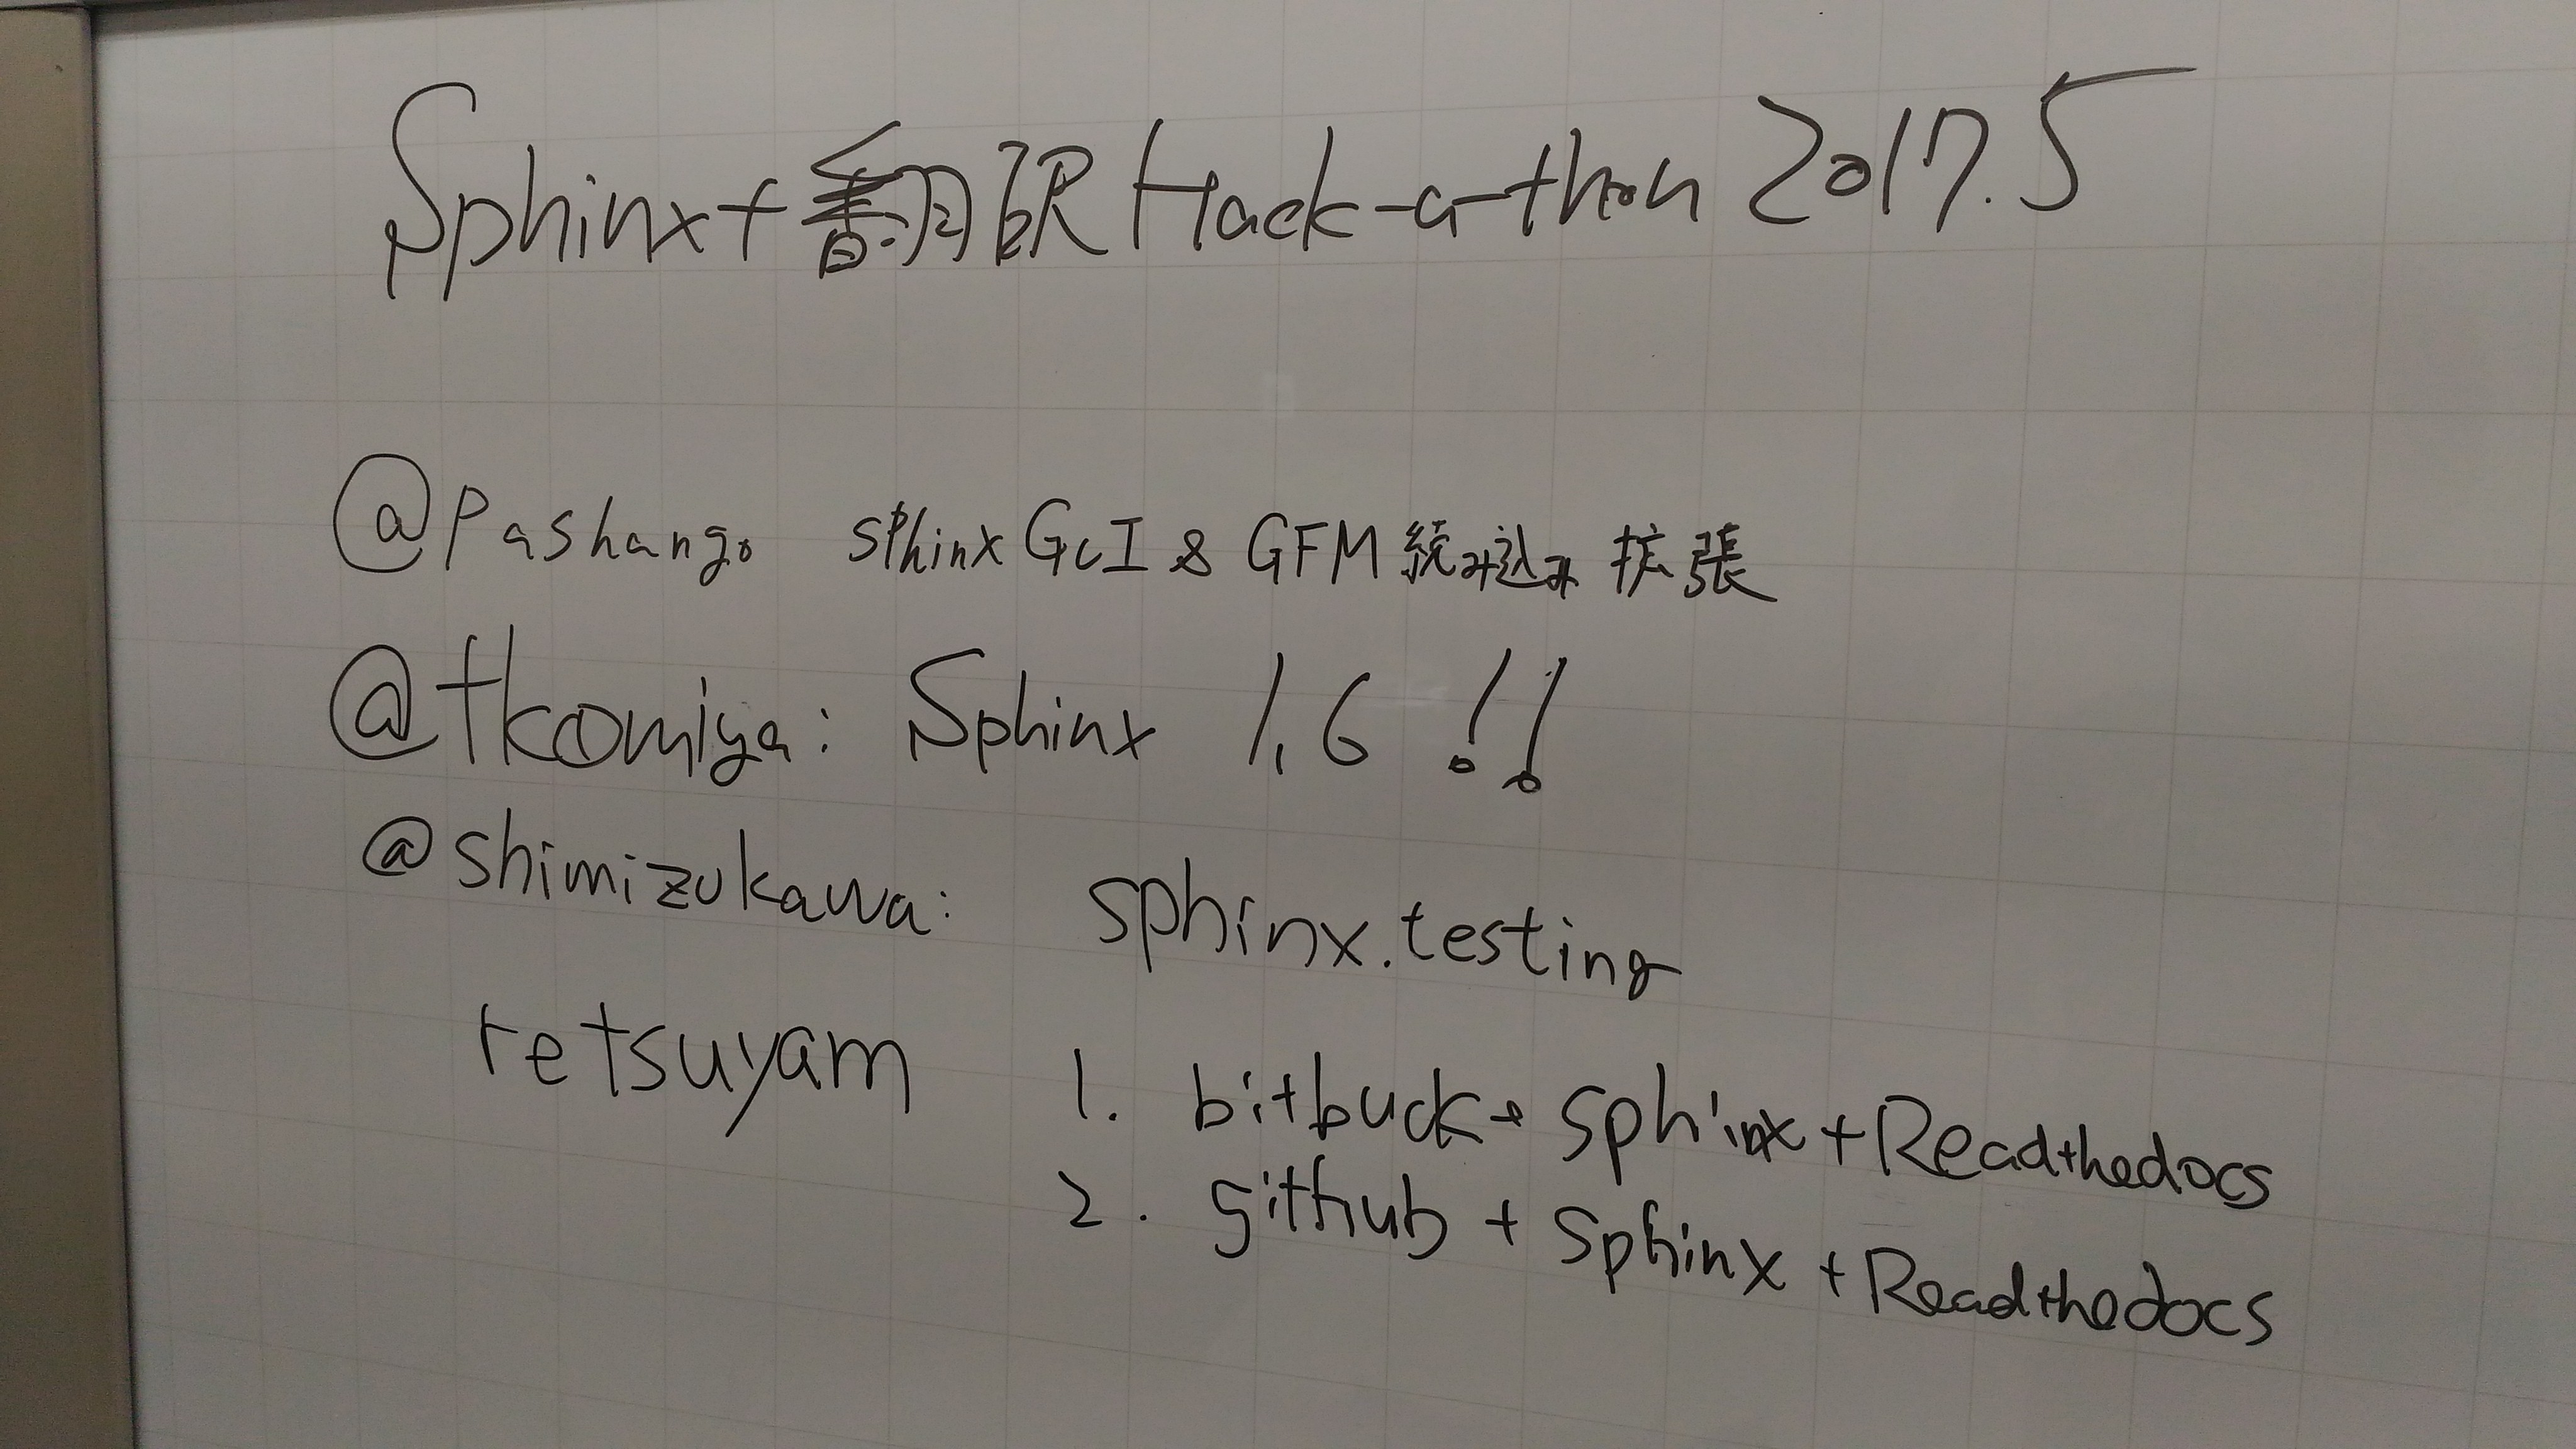 Sphinx+翻訳 Hack-a-thon 2017.5
@Pashango sphinx GUI & GFM 読み込み 拡張
@tkomiya: Sphinx 1.6 !!
@shimizukawa: sphinx.testing
retsuyam 1. bitbuck+ Sphinx +Readthedocs
2. github + Sphinx +Readthedocs